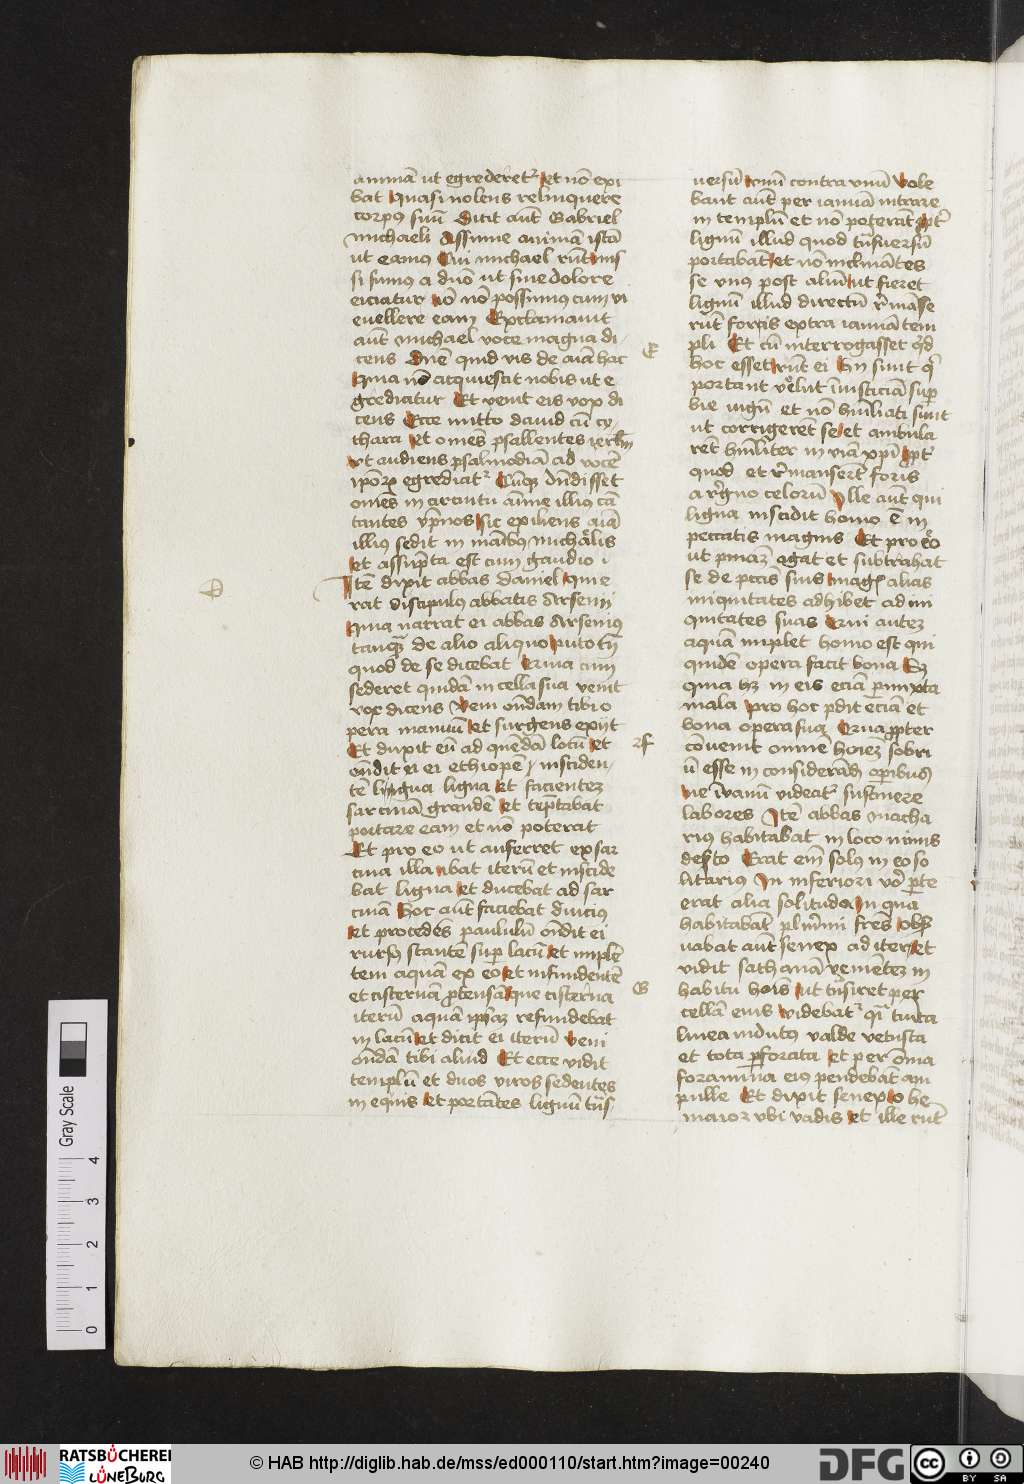 animā ut egrederet᷑ et nō exi
bat Quasi nolens relinquere
corpus suū Dicit aūt Gabriel
michaeli Assume animā istā
ut eamus Cui michael rn̄t ius
si sumus a dn̄o ut sine dolore
eiciatur nō nō possumus cum vi
euellere eam Exclamauit
aūt michael voce magna di-
cens Dn̄e quid vis de aīa hac
Quia nō acquiescit nobis ut e
grediatur Et venit eis vox di
cens Ecce mitto dauid cū cy
thara et omēs psallentes ierlm̄
vt audiens psalmodiā ad vocē
ip̄oꝝ egrediat᷑ Cūqꝫ dn̄disset
omēs in circuitu anīme illius cā
tantes ympnos sic exiliens aīa
illius sedit in manibus michaelis
et assūpta est cum gaudio
D
Itē dixit abbas daniel qui e
rat discipulus abbatis Arsenij
Quia narrat ei abbas Arsenius
tanqͣ de alio aliquo puto tn̄
quod de se dicebat Quia cum
sederet quidā in cella sua venit
vox dicens Veni ondam tibi o
pera manuū et surgens exijt
Et duxit eū ad quēdā locū et
ondit ei ethiopē insciden-
tē lingua ligna et facientez
sarcinā grandē et temptabat
portare eam et nō poterat
Et pro eo ut auferret ex sar
cina illa ibat iterū et inscide
bat ligna et ducebat ad sar
cinā Hoc aūt faciebat diucius
et procedēs paululū ondit ei
rursus stantē super lacū et implē
tem aquam ex eo et infundentē
et cisternā ptensā que cisterna
iterū aquam ip̄az refundebat
in lacū et dicit ei iterū veni
ondā tibi aliud Et ecce vidit
templū et duos viros sedentes
in equis et portātes lignū trās
uersū vnū contra vnū Vole
bant aūt per ianuā intrare
in templū et nō poterāt ppt̄
lignū illud quod transuersū
portabāt et nō inclināntes
se vnus post aliū ut fieret
lignū illud directū r̄manse
rūt foris extra ianuā tem
E
pli Et cū interrogasset qd̄
hoc esset rn̄t ei Hii sunt qͥ
portant velut iusticiā sup
bie iugū et nō humiliati sunt
ut corrigerēt se et ambula
rēt humiliter in viā xp̄i ppt̄
quod et r̄manserūt foris
a r̄gno celorū Ille aūt qui
ligna inscidit homo ē in
peccatis magnis Et pro eo
ut pniaz agat et subtrahat
se de pctīs suis magis alias
iniquitates adhibet ad ini
quitates suas Qui autez
aquam implet homo est qui
quidē opera facit bona Sꝫ
quia hꝫ in eis eciā p̄mixta
mala pro hoc pdit eciā et
bona opera sua Qua ppter
F
cōuenit omne hoiēz sobri
ū esse in considerādis operibus
ne in vanū videat᷑ sustinere
labores Itē abbas macha
rius habitabat in loco nimis
deserto Erat eni solus in eo so
litarius In inferiori vo parte
erat alia solitudo in qua
habitabāt plurimi frēs obser
uabat aūt senex ad iter et
vidit sathanā veniētez in
G
habitu hoīs ut trāsiret per
cellā eius videbat᷑ qͣsi tunica
linea indutus valde vetusta
et tota perforata et per oīa
foramina eius pendebāt am
pulle Et dixit senex o be
maior vbi vadis et ille rn̄t
Gray Scale
4
3
2
1
0
RATSBÜCHEREI
LÜNEBURG
© HAB http://diglib.hab.de/mss/ed000110/start.htm?image=00240
DFG
cc
BY SA